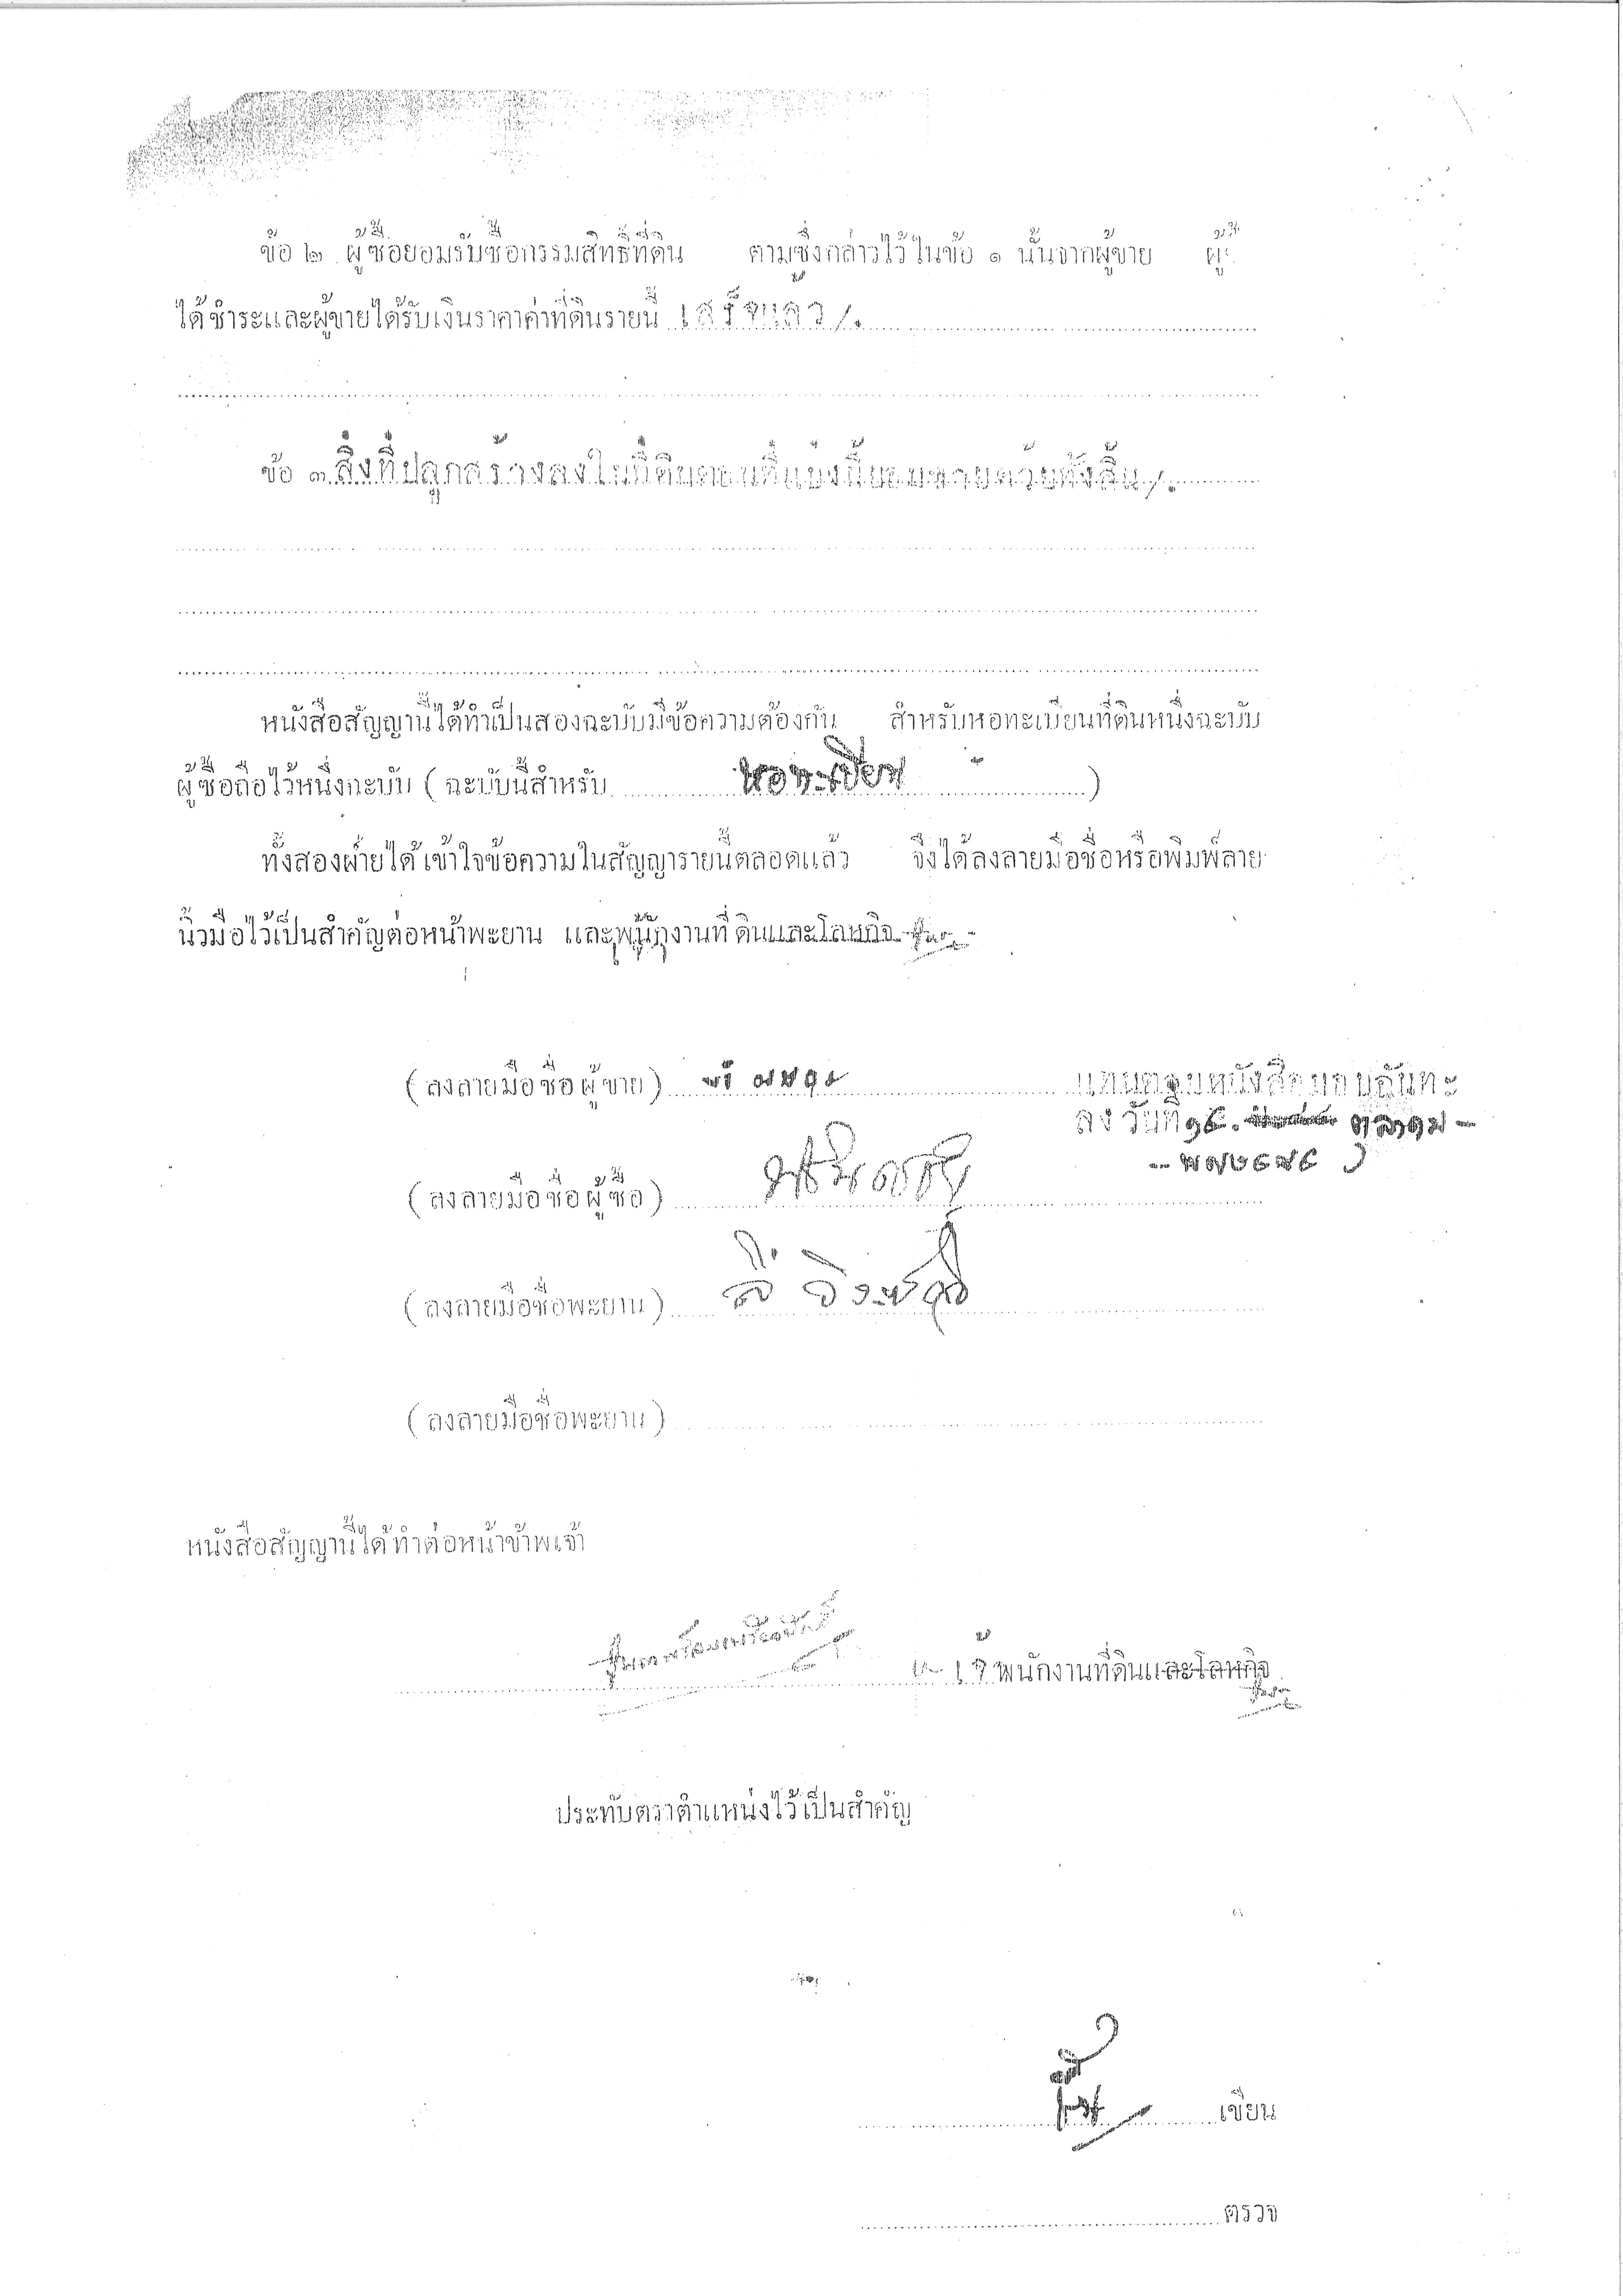 ข้อ ๒ ผู้ซื้อยอมรับซื้อกรรมสิทธิ์ที่ดิน ตามซึ่งกล่าวไว้ในข้อ ๑ นั้นจากผู้ขาย ผู้ซื้
ได้ชำระและผู้ขายได้รับเงินราคาค่าที่ดินรายนี้ เสร็จแล้ว/.
ข้อ ๓ สิ่งที่ปลูกสร้างลงในที่ดินตอนที่แบ่งนี้ยอมขายด้วยทั้งสิ้น/.
หนังสือสัญญานี้ได้ทำเป็นสองฉะบับมีข้อความต้องกัน สำหรับหอทะเบียนที่ดินหนึ่งฉะบับ
ผู้ซื้อถือไว้หนึ่งฉะบับ ( ฉะบับนี้สำหรับ หอทะเบียน )
ทั้งสองฝ่ายได้เข้าใจข้อความในสัญญารายนี้ตลอดแล้ว จึงได้ลงลายมือชื่อหรือพิมพ์ลาย
นิ้วมือไว้เป็นสำคัญต่อหน้าพะยาน และพนักงานที่ดินและโลหกิจ
( ลงลายมือชื่อผู้ขาย )
แทนตามหนังสือมอบฉันทะ
ลงวันที่ ๑๕. ตุลาคม -
( ลงลายมือชื่อผู้ซื้อ )
( ลงลายมือชื่อพะยาน )
( ลงลายมือชื่อพะยาน )
หนังสือสัญญานี้ได้ทำต่อหน้าข้าพเจ้า
เจ้าพนักงานที่ดินและโลหกิจ
ประทับตราตำแหน่งไว้เป็นสำคัญ
เขียน
ตรวจ